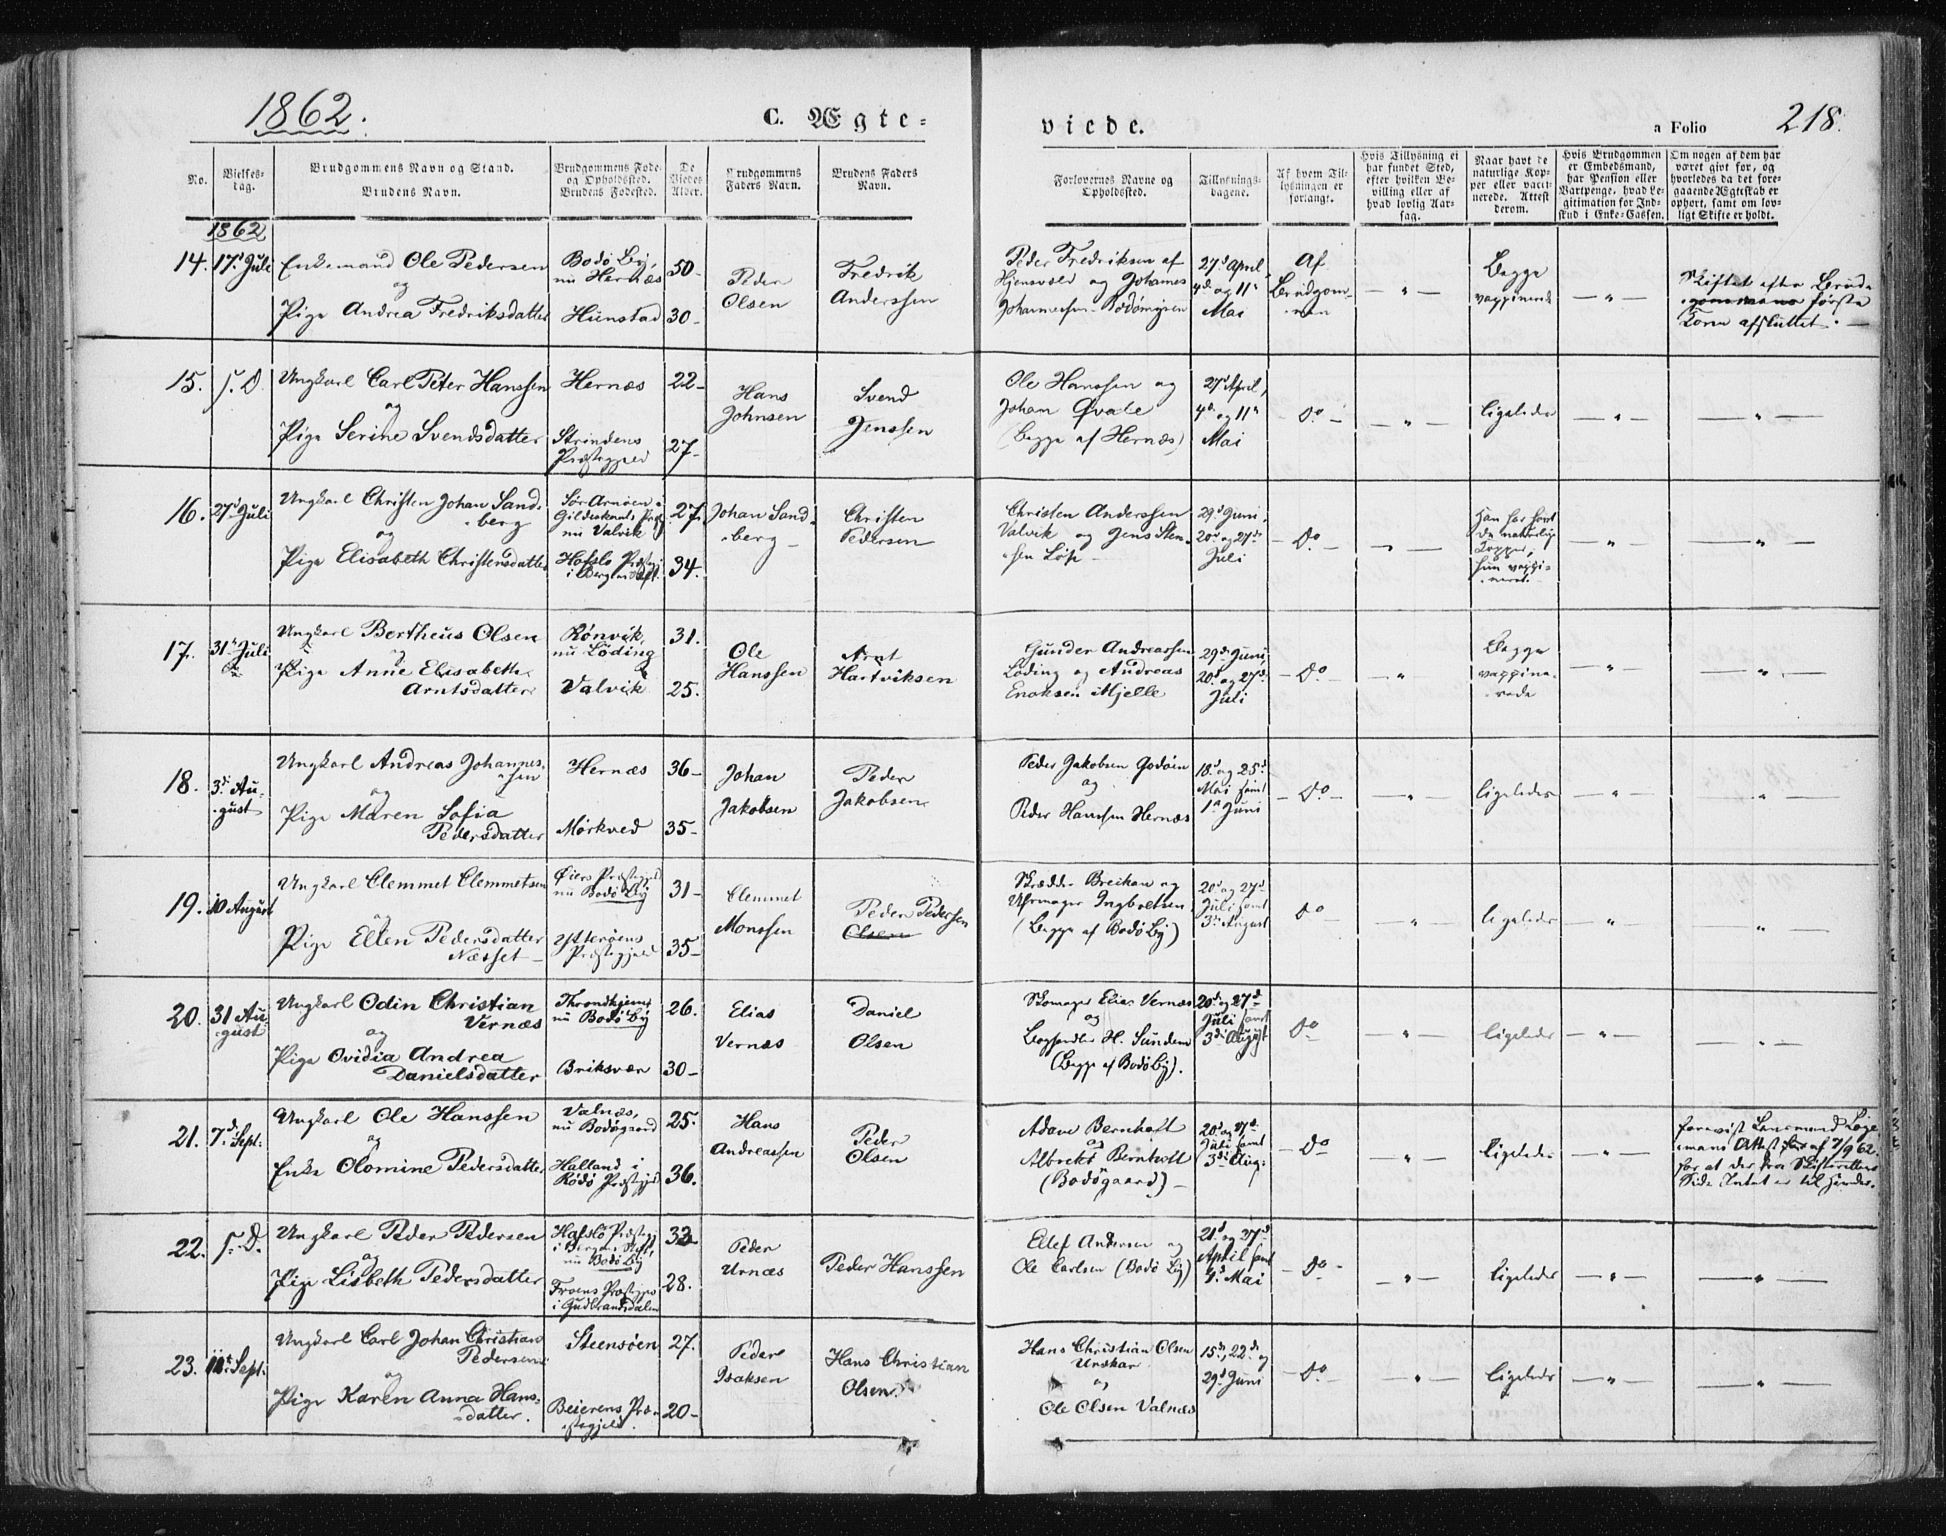 1862.
C. Ægte-
viede.
a Folio 218.
No.
Vielses-
dag.
Brudgommens Navn og Stand.
Brudens Navn.
Brudgommens Føde-
og Opholdssted.
Brudens Fødested.
De
Viedes
Alder.
Brudgommens
Faders Navn.
Brudens Faders
Navn.
Forlovernes Navne og
Opholdssted.
Tillysnings-
dagene.
Af hvem Til-
lysningen er
forlangt.
Hvis Tillysning ei
har fundet Sted,
efter hvilken Be-
villing eller af
hvad lovlig Aar-
sag.
Naar havt de
naturlige Kop-
per eller vacci-
nerede. Attest
derom.
Hvis Brudgommen
er Embedsmand,
har Pension eller
Vartpenge, hvad Le-
gitimation for Ind-
skud i Enke-Cassen.
Om nogen af dem har
været gift før, og
hvorledes da det fore-
gaaende Ægteskab er
ophørt, samt om lov-
ligt Skifte er holdt.
1862
14. 17d Juli
Enkemand Ole Pedersen
og
Pige Andrea Fredriksdatter
Bodö By,
nu Hernæs
Hunstad
50-
30-
Peder
Olsen
Fredrik
Anderssen
Peder Fredriksen af
Hjensvold og Johannes
Johannessen Bodömyren
27d April
4de og 11te
Mai
Af
Brudgom-
men
- " -
Begge
vaxinerede
- " -
Skiftet efter Brud-
gommens første
Kone afsluttet. -
15. s. D.
Ungkarl Carl Peter Hanssen
og
Pige Serine Svendsdatter
Hernæs
Strindens
Præstegjeld
22-
27-
Hans
Johnsen
Svend
Jenssen
Ole Hanssen og
Johan Øvale
(begge af Hernæs)
27d April,
4de og 11te
Mai
- Do -
- " -
ligeledes
- " -
- " -
16. 27d Juli
Ungkarl Christen Johan Sand-
berg
og
Pige Elisabeth Christensdatter
Sör Arnöen i
Gildeskaals Præst
nu Valvik
Hafslo Præstegj
i Bergens Stift
27.
34.
Johan Sand-
berg -
Christen
Pedersen
Christen Anderssen
Valvik og Jens Sten-
sen Löp -
29d Juni,
20d og 27de
Juli
- Do -
- " -
Han har havt
de naturlige
Kopper,
hun vaxi-
neret.
- " -
- " -
17. 31te Juli
Ungkarl Bertheus Olsen
og
Pige Anne Elisabeth
Arntsdatter
Rönvik,
nu Löding
Valvik
31.
25.
Ole
Hanssen
Arnt
Hartviksen
Gunder Andreassen
Löding og Andreas
Enoksen Mjelle
29de Juni,
20d og 27d
Juli
- Do
- " -
Begge
vaxine-
rede
- " -
- " -
18. 3di Au-
gust
Ungkarl Andreas Johannes-
sen
og
Pige Maren Sofia
Pedersdatter
Hernæs
Mörkved
36-
35-
Johan
Jakobsen
Peder
Jakobsen
Peder Jakobsen Godöen
og
Peder Hanssen Hernæs
18d og 25d
Mai samt
1te Juni
- Do -
- " -
ligeledes
- " -
"
19. 10 August
Ungkarl Clemmet Clemmetsen
og
Pige Ellen Pedersdatter
Næsset -
Øiers Præstegjeld
nu Bodö By
Ytteröens
Præstegjeld
31-
35-
Clemmet
Monssen
Peder Pedersen
Olsen
Skrædder Breikan og
Uhrmager Ingbretsen
(Begge af Bodö By)
20d og 27d
Juli samt
3di August
Do
"
ligeledes
- " -
- " -
20. 31 Au-
gust
Ungkarl Odin Christian
Vernæs
og
Pige Ovidia Andrea
Danielsdatter
Throndhjem,
nu Bodö By
Briksvær
26.
30-
Elias
Vernæs
Daniel
Olsen
Skomager Elias Vernæs
og
Boghandler H. Sundem
(Begge af Bodö By).
20d og 27d
Juli samt
3di August
Do
- " -
ligeledes
- " -
- " -
21. 7d Sept.
Ungkarl Ole Hanssen
og
Enke Olomine Pedersdatter
Valnæs,
nu Bodögaard
Halland i
Rödö Præstegjeld
25.
36.
Hans
Andreassen
Peder
Olsen
Adam Bernhoft
og
Albrekt Bernhoft
(Bodögaard) -
20d og 27d
Juli samt
3di Aug:
- Do
- " -
ligeledes
- " -
forevist Lensmand Lege-
mans Attest for af 7/9 62.
for at der fra Skifterettens
Side Intet er til Hinder.
22. s. D.
Ungkarl Peder Pedersen
og
Pige Lisbeth Pedersdatter
Hafslö Præstegj
i Bergens Stift,
nu Bodö By
Froens Præstegjeld
i Gudbrandsdalen
32
28.
Peder
Urnæs
Peder Hanssen
Ellef Andersen og
Ole Carlsen (Bodö By)
21d og 27d
April samt
4d Mai
- Do -
- " -
ligeledes
- " -
- " -
23. 11te Sept.
Ungkarl Carl Johan Christian
Pedersen
og
Pige Karen Anna Hans-
datter.
Steensöen
Beierens Præ-
stegjeld.
27.
20-
Peder
Isaksen
Hans Christian
Olsen
Hans Christian Olsen
Unskar
og
Ole Olsen Valnæs
15de, 22de og
29d Juni
- Do
- " -
ligeledes
- " -
- " -